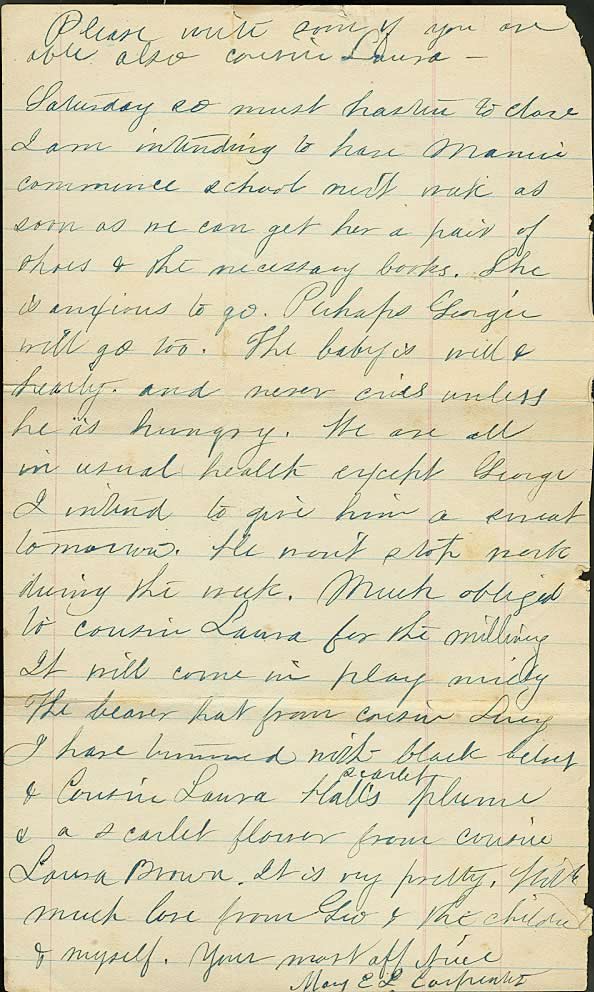 Please write soon if you are
able also cousin Laura —
Saturday so must hasten to close
I am intending to have Mamie
commence school next week as
soon as we can get her a pair of
shoes & the necessary books. She
is anxious to go. Perhaps Georgie
will go too. The baby is well &
hearty. and never cries unless
he is hungry. We are all
in usual health except George
I intend to give him a sweat
tomorrow. He won't stop work
during the week. Much obliged
to cousin Laura for the millinery
It will come in play nicely
The beaver hat from cousin Lucy
I have trimmed with black velvet
& Cousin Laura Hall's scarlet plume
& a scarlet flower from cousin
Laura Brown. It is very pretty. With
much love from Geo & the children
& myself. Your most aff Niece
Mary E L Carpenter